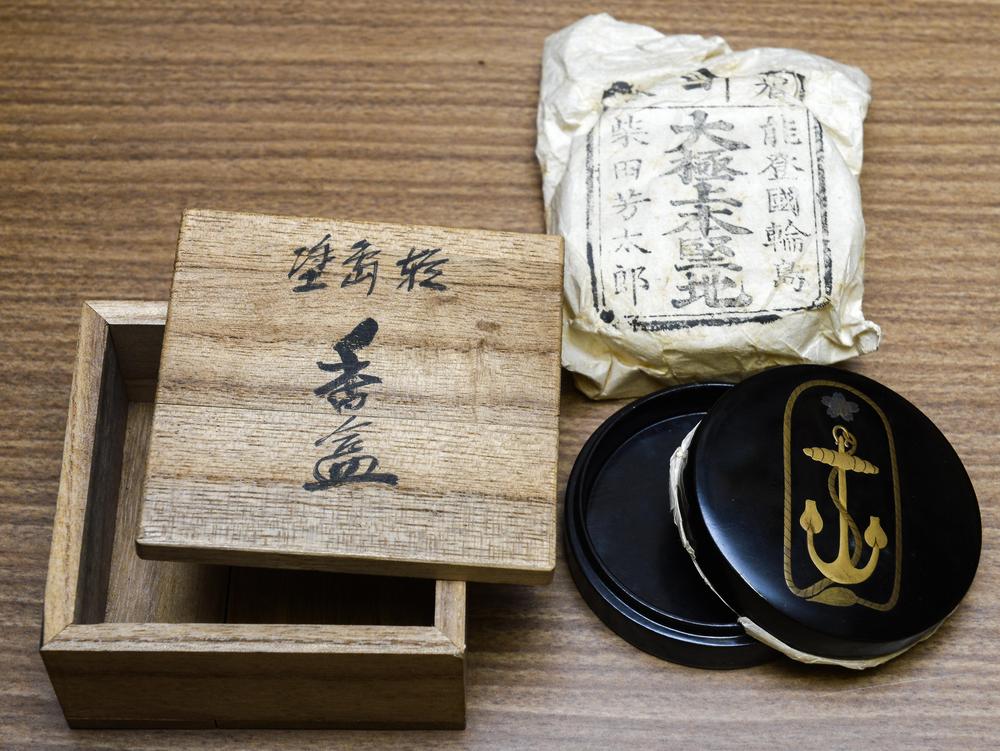 輪島塗
香盒
能登國輪島
大極上本堅地
柴田芳太郎